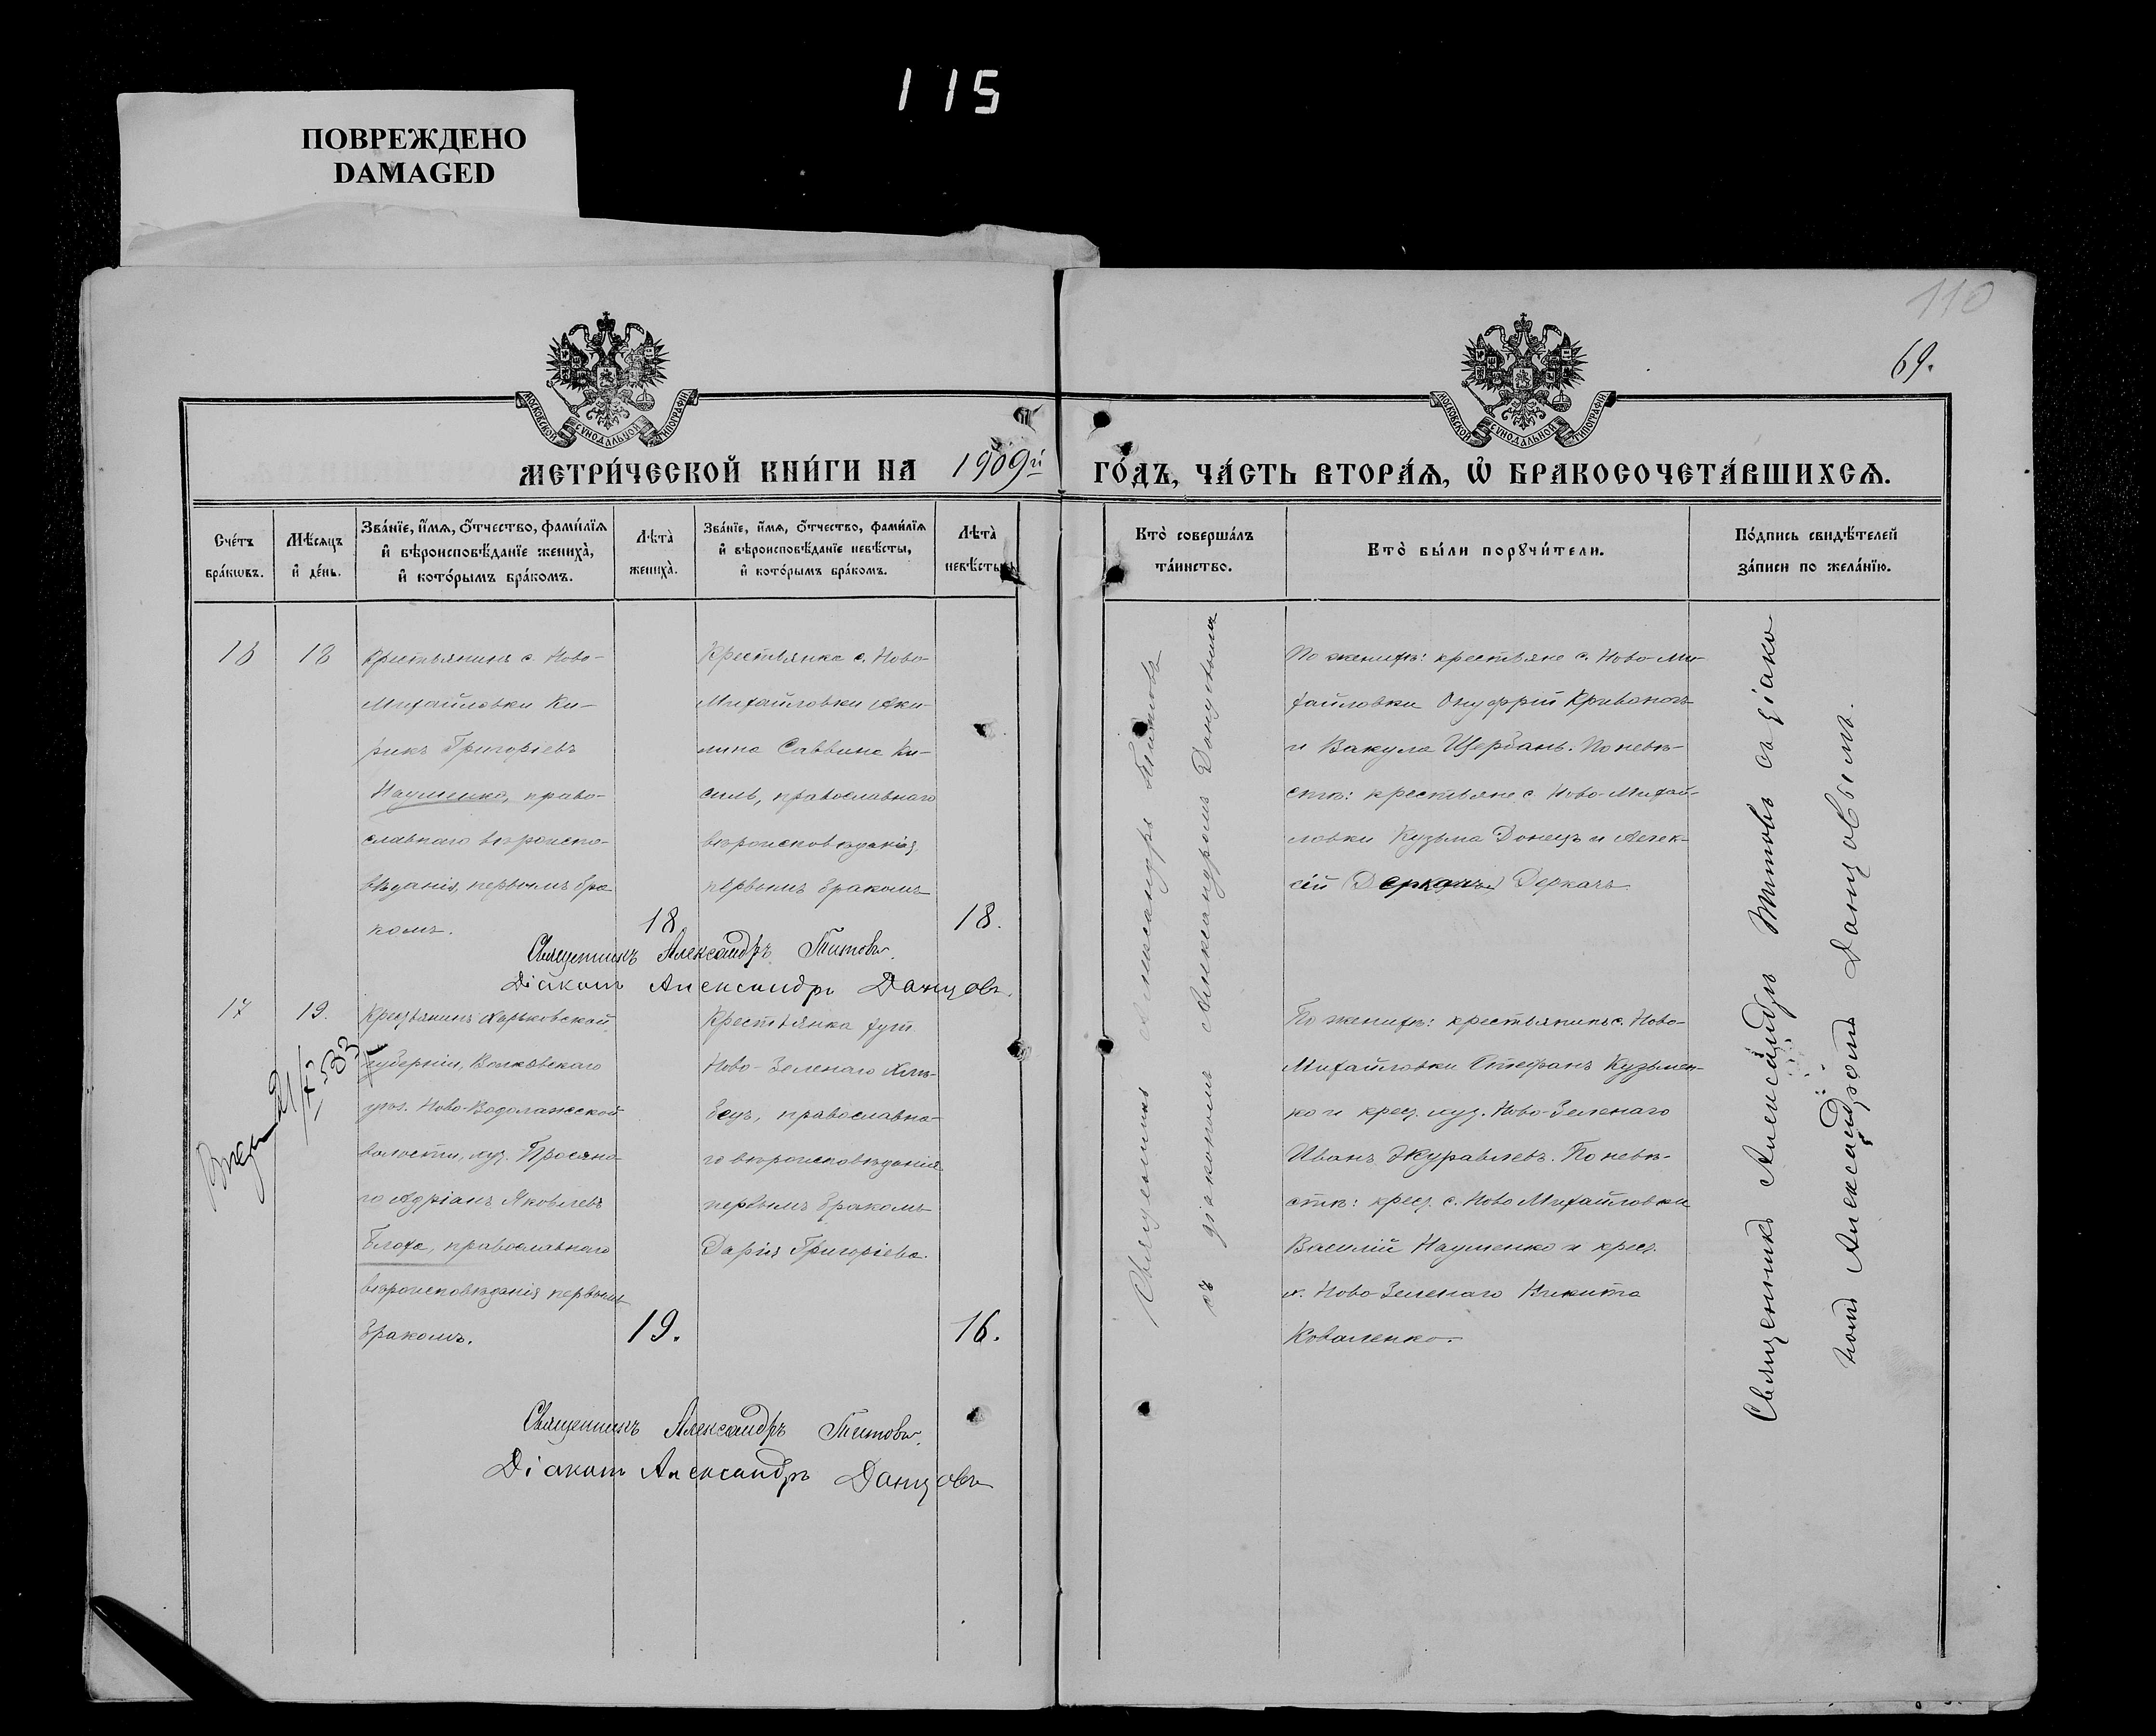 115
ПОВРЕЖДЕНО
DAMAGED
110
69.
МОСКОВСКОЙ СУНОДАЛЬНОЙ ТИПОГРАФІИ
МОСКОВСКОЙ СУНОДАЛЬНОЙ ТИПОГРАФІИ
МЕТРИ́ЧЕСКОЙ КНИ́ГИ НА 1909й ГО́ДЪ, ЧА́СТЬ ВТОРА́Ѧ, Ѡ҆ БРАКОСОЧЕТА́ВШИХСѦ.
Сче́тъ
бра́кѡвъ.
Мѣ́сяцъ
и҆ де́нь.
Зва́нїе, и҆́мѧ, ѻ҆́тчество, фами́лїѧ
и҆ вѣроисповѣ́данїе жениха̀,
и҆ кото́рымъ бра́комъ.
Лѣта̀
жениха̀.
Зва́нїе, и҆́мѧ, ѻ҆́тчество, фами́лїѧ
и҆ вѣроисповѣ́данїе невѣ́сты,
и҆ кото́рымъ бра́комъ.
Лѣта̀
невѣ́сты.
Кто̀ соверша́лъ
та́инство.
Кто̀ бы́ли порꙋчи́тели.
По́дпись свидѣ́телей
за́писи по жела́нїю.
18
Крестьянинъ с. Ново-
Михайловки Ки-
рикъ Григоріевъ
Науменко, право-
славнаго вѣроиспо-
вѣданія, первымъ бра
комъ.
18
Крестьянка с. Ново-
Михайловки Аки-
лина Саввина Ки-
силь, православнаго
вѣроисповѣданія
первымъ бракомъ
18.
По женихѣ: крестьяне с. Ново-Ми-
хайловки Онуфрій Кривоносъ
и Вакула Щербань. По невѣ-
стѣ: крестьяне с. Ново-Михай-
ловки Кузьма Донецъ и Алек-
сій (Деркачъ) Деркачъ
Священникъ Александръ Титовъ.
Діаконъ Александръ Данцовъ.
17
19.
Крестьянинъ Харьковской
губерніи, Валковскаго
уѣз. Ново-Водолажской
волости, хут. Просяно-
го Адріанъ Яковлевъ
Блоха, православнаго
вѣроисповѣданія первымъ
бракомъ.
19.
Крестьянка хут.
Ново-Зеленаго Хлѣ-
бецъ, православна-
го вѣроисповѣданія
первымъ бракомъ
Дарія Григоріева.
16.
По женихѣ: крестьянинъ с. Ново-
Михайловки Стефанъ Кузьмен-
ко и крес. хут. Ново-Зеленаго
Иванъ Журавлевъ. По невѣ-
стѣ: крес. с. Ново Михайловки
Василій Науменко и крес.
х. Ново Зеленаго Никита
Коваленко.
Священникъ Александръ Титовъ.
Діаконъ Александръ Данцовъ
Священникъ Александръ Титовъ
съ діакономъ Александромъ Данцовымъ
Священникъ Александръ Титовъ съ діако-
номъ Александромъ Данцовымъ.